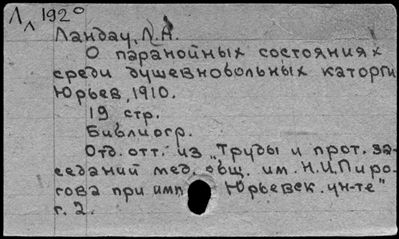 Л л 1920
Ландау, Л.А.
О паранойных состояниях
среди душевнобольных каторги
Юрьев, 1910.
19 стр.
Библиогр.
Отд. отт. из "Труды и прот. за-
седаний мед. общ. им. Н.И.Пиро-
гова при имп. Юрьевск. ун-те"
г. 2.